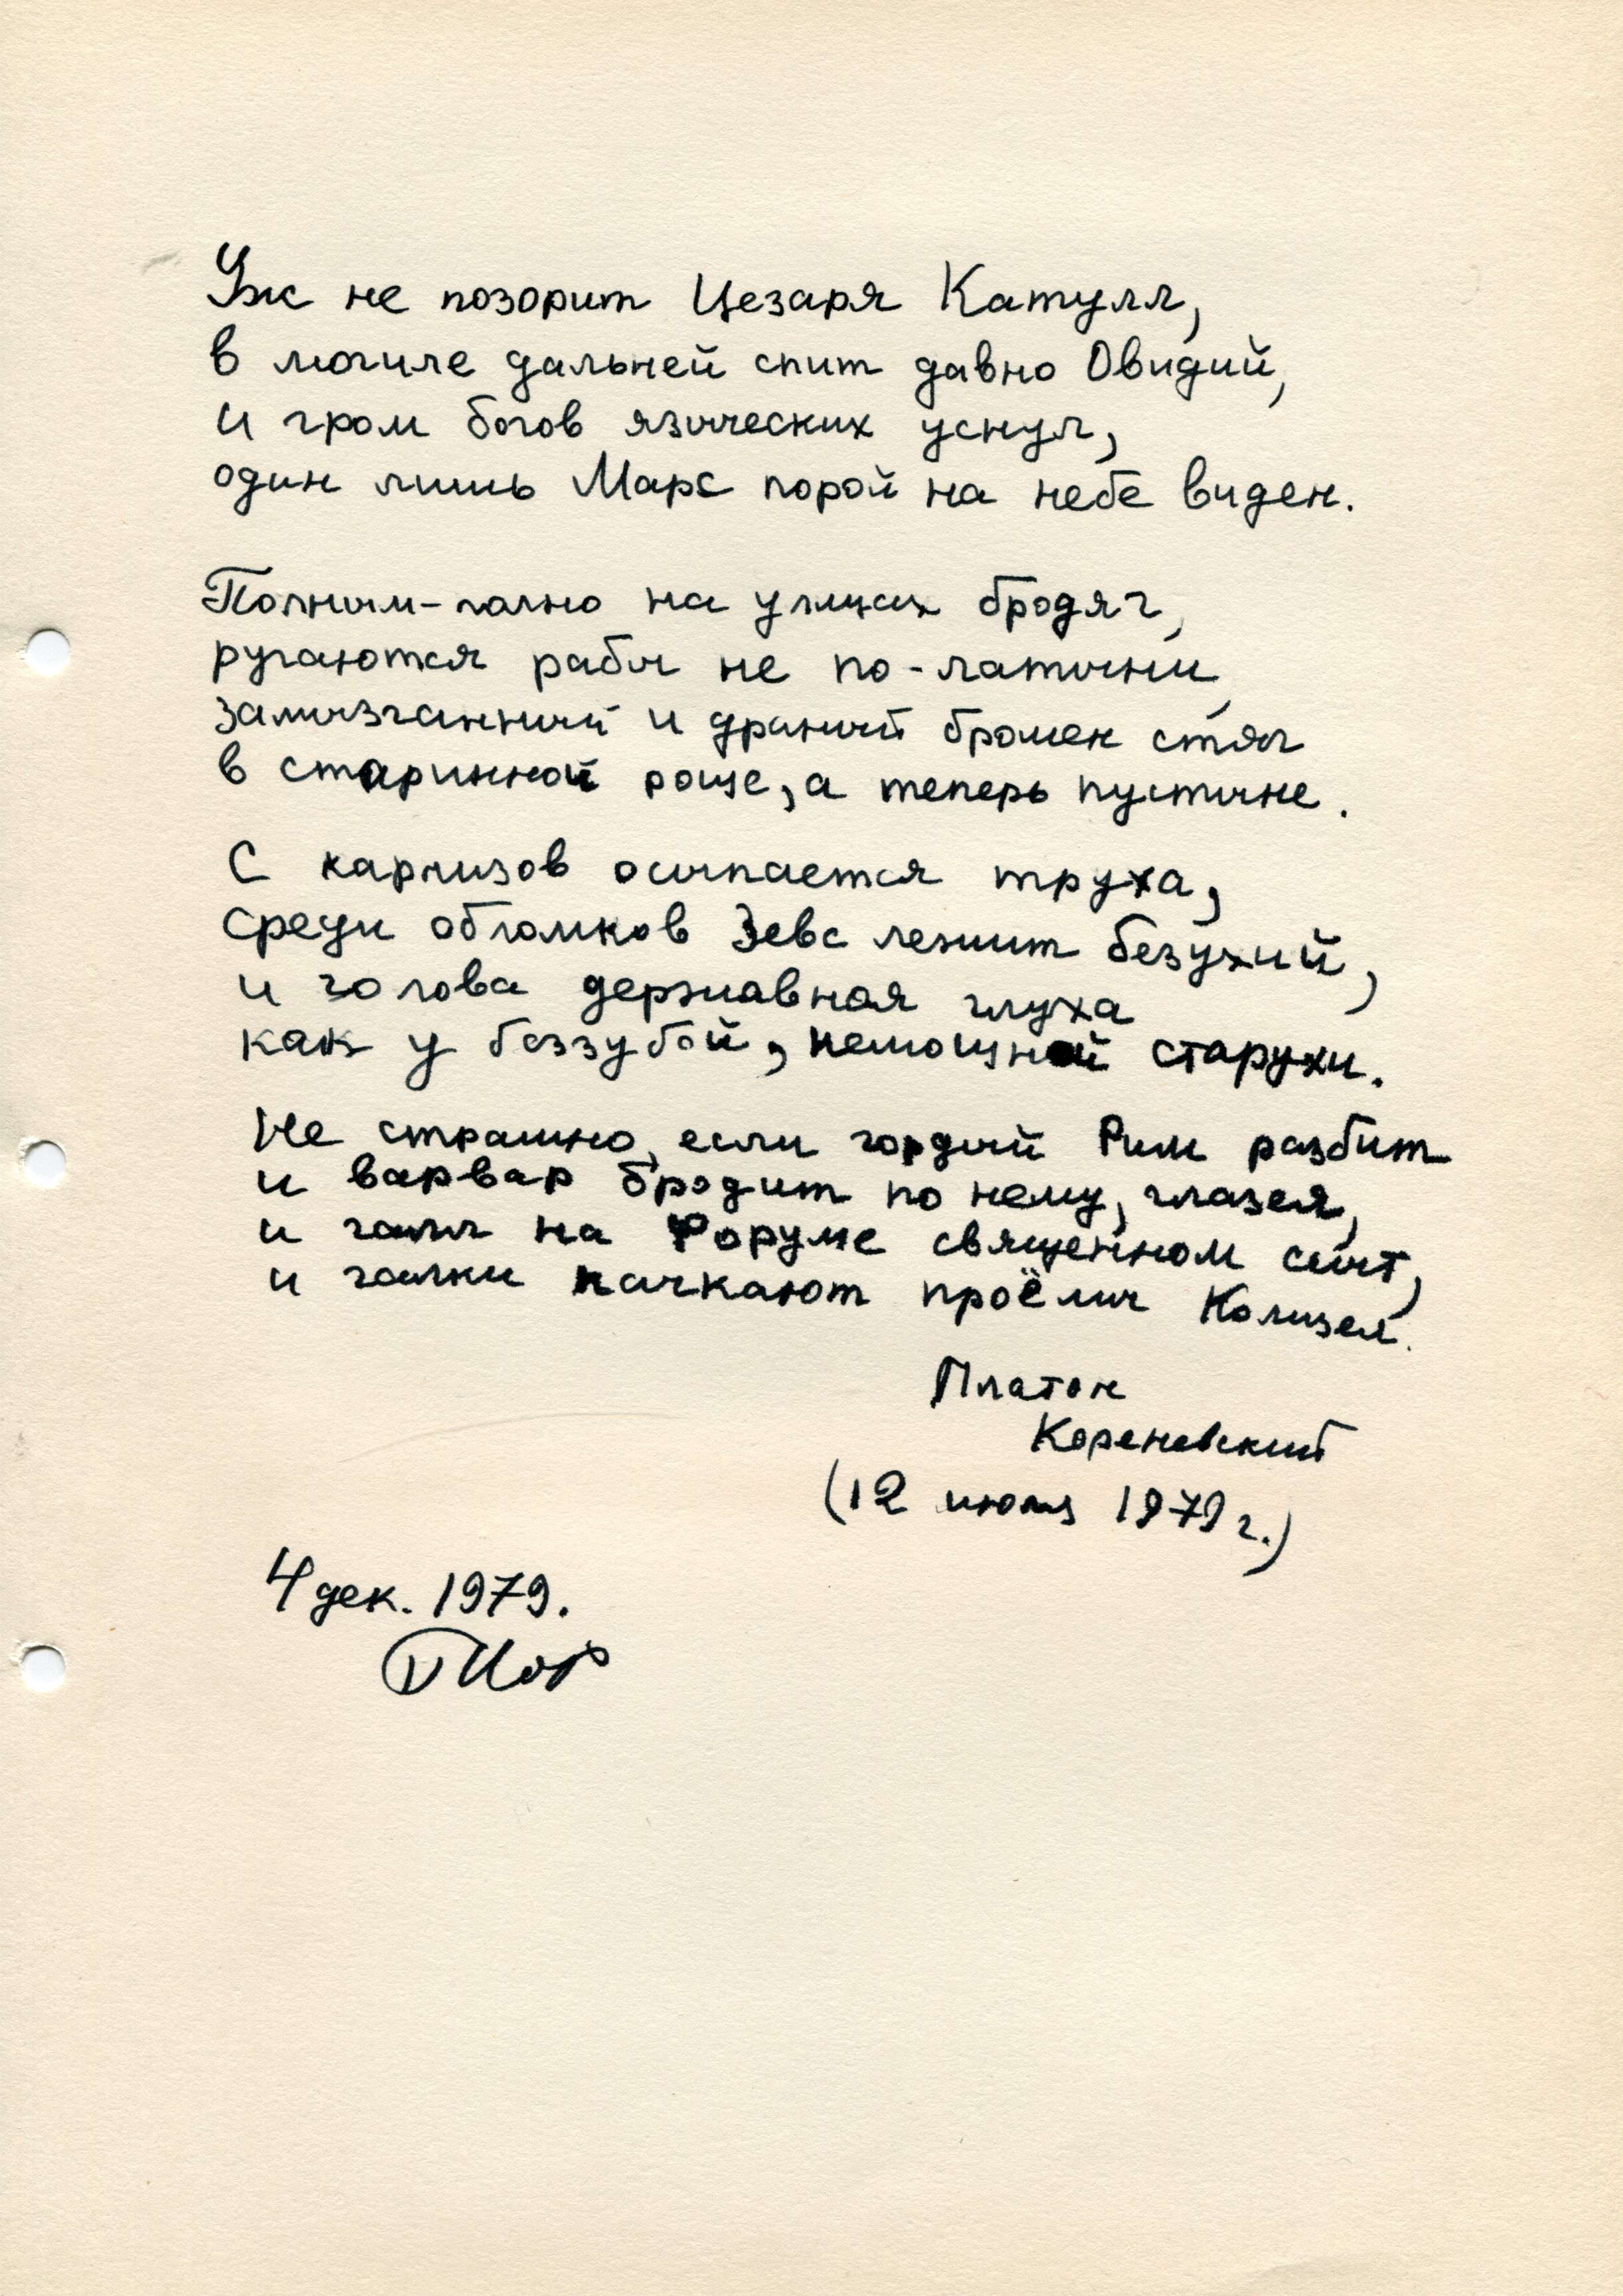 Уж не позорит Цезаря Катулл,
в могиле дальней спит давно Овидий,
и гром богов языческих уснул,
один лишь Марс порой на небе виден.
Полным-полно на улицах бродяг,
ругаются рабы не по-латыни,
замызганный и драный бромен стяг
в старинной роще, а теперь пустыне.
С карнизов осыпается труха,
среди обломков Зевс лежит безухий,
и голова державная глуха
как у беззубой, немощной старухи.
Не страшно, если гордый Рим разбит
и варвар бродит по нему, глазея,
и галл на Форуме священном сыт,
и галки пачкают проёмы Колизея.
Платон
Кореневский
(12 июля 1979 г.)
4 дек. 1979.